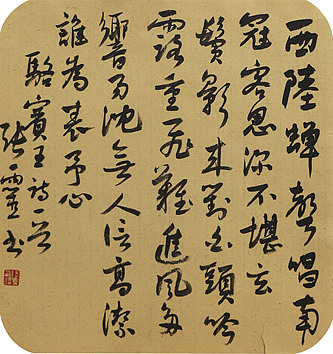 西陸蟬聲唱南
冠客思深不堪玄
鬢影來對白頭吟
露重飛難進風多
響易沈無人信高潔
誰為表予心
駱賓王詩一首
張靈書